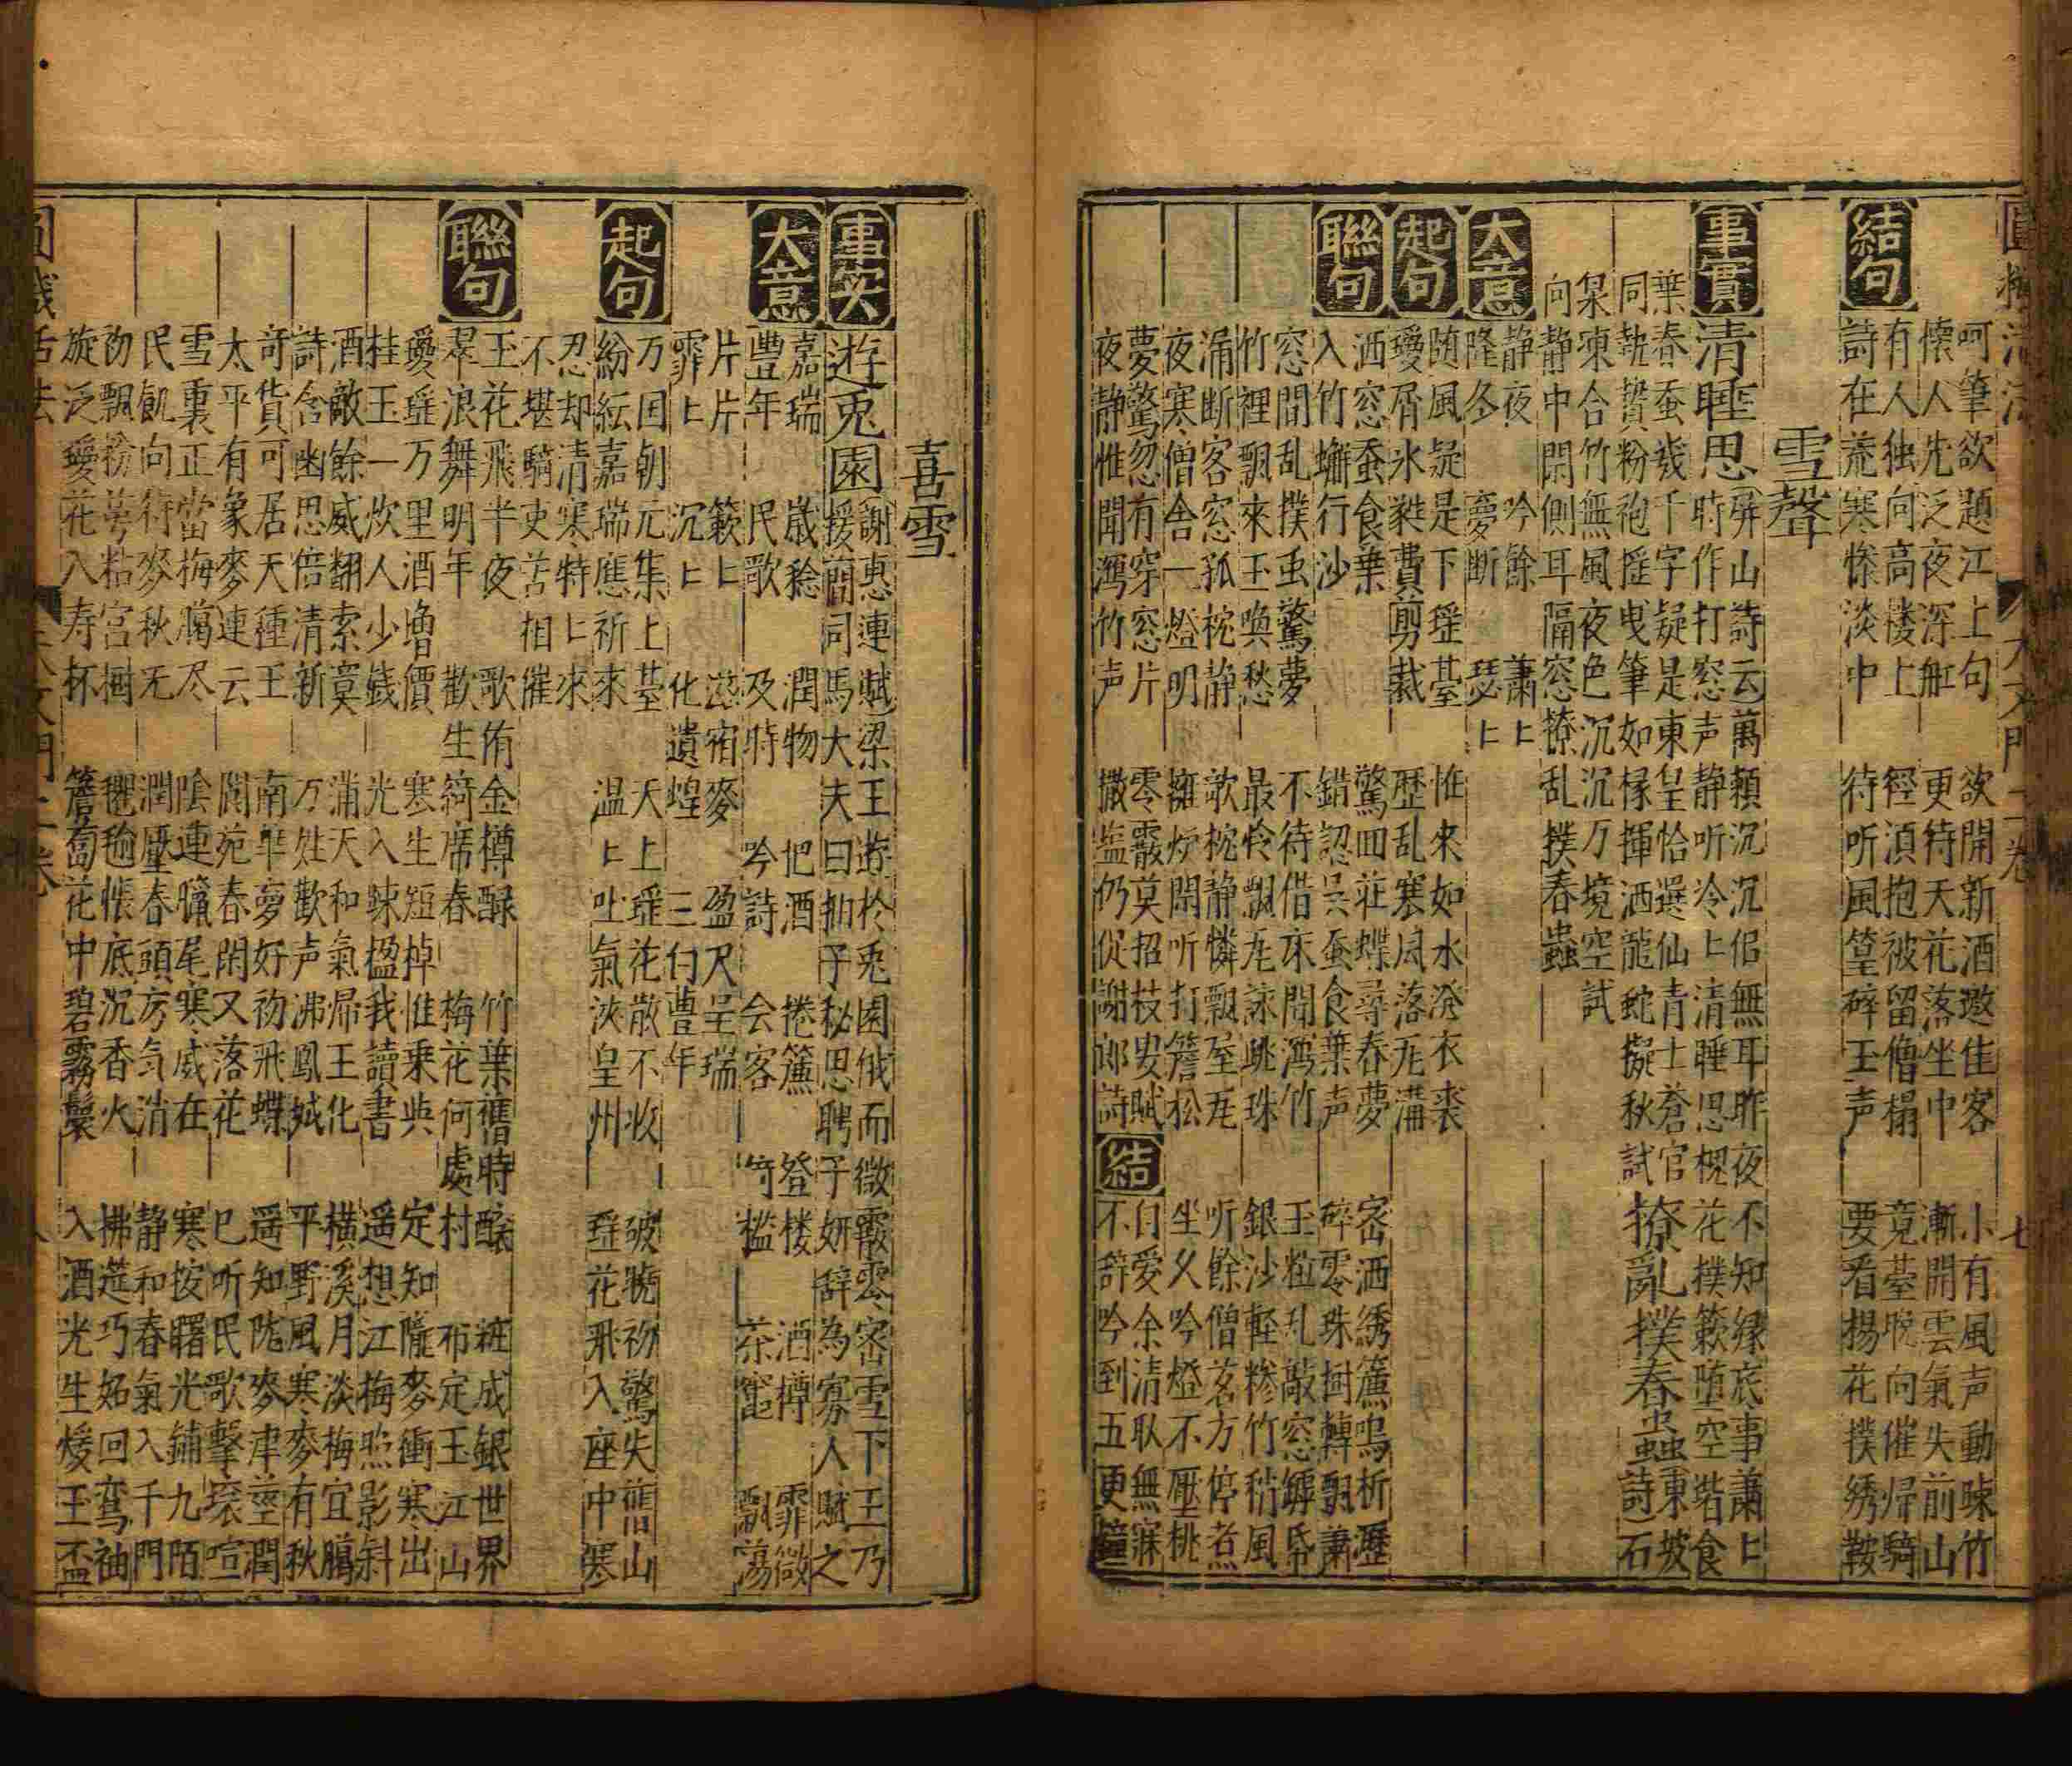 結句
呵筆欲題江上句 欲開新酒邀佳客 小有風声動竦竹
懷人先泛夜深舡 更待天花落坐中 漸開雲氣失前山
有人独向高楼上 徑須抱被留僧榻 竟臺晚向催帰騎
詩在荒寒惨淡中 待听風篁碎玉声 要看楊花撲绣鞍
雪聲
事實
清睡思
屏山詩云萬籟沉沉侶無耳昨夜不知縁底事蕭ヒ
時作打窓声静听冷ヒ清睡思梘花撲簌堕空堦食
葉春蚕
葉春蚕幾千字疑是東皇恰選仙青士蒼官
同執贄粉袍揺曳筆如椽揮洒龍蛇擬秋試
撩亂撲春蟲
東坡詩石
泉凍合竹無風夜色沉沉万境空試
向静中閑側耳隔窓撩乱撲春蟲
大意
静夜 吟餘 蕭ヒ
隆冬 夢断 瑟ヒ
起句
随風疑是下瑶臺 惟来如水溌衣裘
璦屑氷漦費剪裁 歴乱寒風落瓦溝
聯句
洒窓蚕食葉 驚回荘蝶尋春夢 密洒绣簾鳴析瀝
入竹蠏行沙 錯認呉蚕食葉声 碎零珠樹轉飄蕭
窓間乱撲虫驚夢 不待借床聞瀉竹 玉粒乱敲窓罅帋
竹裡飄來玉喚愁 最怜飄瓦詠跳珠 銀沙軽糝竹稍風
漏断客窓孤枕静 歌枕静憐飄屋瓦 听餘僧茗方停煮
夜寒僧舎一燈明 擁炉閑听打簷松 坐久吟燈不壓桃
夢驚忽有穿窓片 零霰莫招枝叟賦
夜静惟聞瀉竹声 撒塩仍促謝郎詩
結
白愛余清耿無寐
不辞吟到五更鐘
喜雪
事実
遊兎園
謝恵連賦梁王遊於兎園俄而微霰零密雪下王乃
援簡同馬大夫曰抽子秘思聘子妍辞為寡人賦之
大意
嘉瑞 歳稔 潤物 把酒 捲簾 登楼 酒樽 霏微
豊年 民歌 及時 吟詩 会客 䓫檻 茶竈 飄蕩
片片 簌ヒ 滋宿麥 盈尺呈瑞
霏ヒ 沉ヒ 化遺蝗 三白豊年
起句
万国朝元集上䑓 天上瑶花散不收 破曉初驚失舊山
紛紜嘉瑞應祈來 温ヒ吐氣浹皇州 瑶花飛入座中寒
忍却清寒特ヒ來
不堪騎吏苦相催
聯句
玉花飛半夜 歌侑金樽醁 竹葉舊時醸 粧成銀世界
翠浪舞明年 歡生綺席春 梅花何處村 布定玉江山
璦瑶万里酒増價 寒生短棹惟乗興 定知隴麥衝寒出
桂玉一炊人少銭 光入竦楹我讀書 遥想江梅照影斜
酒敵餘威翻索莫 蒲天和氣帰王化 横溪月淡梅宜臈
詩含幽思倍清新 万姓歡声沸鳳城 平野風寒麥有秋
奇貨可居天種玉 南華夢好初飛蝶 遥知隴麥津莖潤
太平有象麥連云 閬苑春閑又落花 已听民歌擊壌喧
雪裏正當梅臈尽 陰連臘尾寒威在 寒按曙光鋪九陌
民飢向待麥秋无 潤壓春頭方気消 静和春氣入千門
初飄粉蕚粘宮樹 氍毺帳底沉香火 拂莚巧妬回鸞袖
旋泛璦花入寿杯 簷蔔花中碧霧鬟 入酒光生煖玉盃